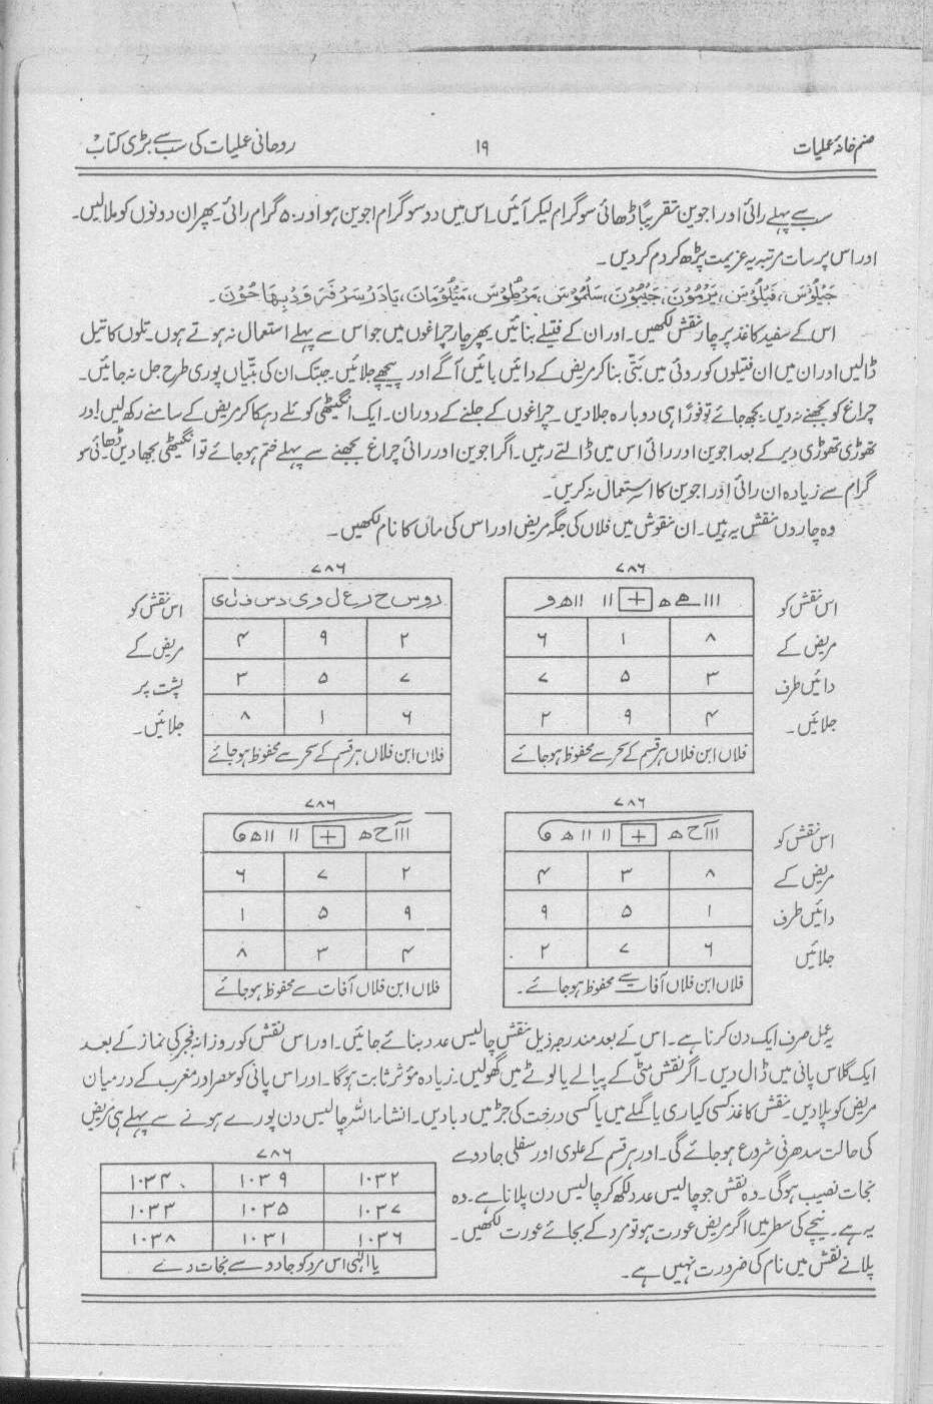 صنم خانۂ عملیات ۱۹ روحانی عملیات کی سب سے بڑی کتاب
سب سے پہلے رائی اور اجوین تقریباً ڈھائی سو گرام لیکر آئیں۔ اس میں دو سو گرام اجوین ہو اور ۵۰ گرام رائی پھر ان دونوں کو ملالیں۔
اور اس پر سات مرتبہ یہ عزیمت پڑھ کر دم کردیں۔
اس کے سفید کاغذ پر چار نقش لکھیں۔ اور ان کے فتیلے بنائیں پھر چار چراغوں میں جو اس سے پہلے استعمال نہ ہوئے ہوں۔ تلوں کا تیل
ڈالیں اور ان میں ان فتیلوں کو روئی میں بتی بنا کر مریض کے دائیں بائیں آگے اور پیچھے جلائیں۔ جبتک ان کی بتّیاں پوری طرح جل نہ جائیں۔
چراغ کو بجھنے نہ دیں۔ بجھ جائے تو فوراً ہی دوبارہ جلادیں۔ چراغوں کے جلنے کے دوران۔ ایک انگیٹھی کوئلے دہکا کر مریض کے سامنے رکھ لیں اور
تھوڑی تھوڑی دیر کے بعد اجوین اور رائی اس میں ڈالتے رہیں۔ اگر اجوین اور رائی چراغ بجھنے سے پہلے ختم ہوجائے تو انگیٹھی بجھا دیں ڈھائی سو
گرام سے زیادہ ان رائی اور اجوین کا استعمال نہ کریں۔
وہ چاروں نقش یہ ہیں۔ ان نقوش میں فلاں کی جگہ مریض اور اس کی ماں کا نام لکھیں۔
اس نقش کو
مریض کے
دائیں طرف
جلائیں۔
۷۸۶
۸ ۱ ۶
۳ ۵ ۷
۴ ۹ ۲
فلاں ابن فلاں ہر قسم کے سحر سے محفوظ ہوجائے
۷۸۶
۲ ۹ ۴
۷ ۵ ۳
۶ ۱ ۸
فلاں ابن فلاں ہر قسم کے سحر سے محفوظ ہوجائے
اس نقش کو
مریض کے
پشت پر
جلائیں۔
اس نقش کو
مریض کے
دائیں طرف
جلائیں
۷۸۶
۸ ۳ ۴
۱ ۵ ۹
۶ ۷ ۲
فلاں ابن فلاں آفات سے محفوظ ہوجائے۔
۷۸۶
۲ ۷ ۶
۹ ۵ ۱
۴ ۳ ۸
فلاں ابن فلاں آفات سے محفوظ ہوجائے
یہ عمل صرف ایک دن کرنا ہے۔ اس کے بعد مندرجہ ذیل نقش چالیس عدد بنائے جائیں۔ اور اس نقش کو روزانہ فجر کی نماز کے بعد
ایک گلاس پانی میں ڈال دیں۔ اگر نقش مٹّی کے پیالے یا لوٹے میں گھولیں۔ زیادہ مؤثر ثابت ہوگا۔ اور اس پانی کو عصر اور مغرب کے درمیان
مریض کو پلادیں۔ نقش کا غذ کسی کیاری یا گملے میں یا کسی درخت کی جڑ میں دبا دیں۔ انشاء اللہ چالیس دن پورے ہونے سے پہلے ہی مریض
کی حالت سدھرنی شروع ہوجائے گی۔ اور ہر قسم کے علوی اور سفلی جادو سے
نجات نصیب ہوگی۔ وہ نقش جو چالیس عدد لکھ کر چالیس دن پلانا ہے۔ وہ
یہ ہے۔ نیچے کی سطر میں اگر مریض عورت ہو تو مرد کے بجائے عورت لکھیں۔
پلانے نقش میں نام کی ضرورت نہیں ہے۔
۷۸۶
۱۰۳۲ ۱۰۳۹ ۱۰۳۴
۱۰۳۷ ۱۰۳۵ ۱۰۳۳
۱۰۳۶ ۱۰۳۱ ۱۰۳۸
یا الٰہی اس مرد کو جادو سے نجات دے